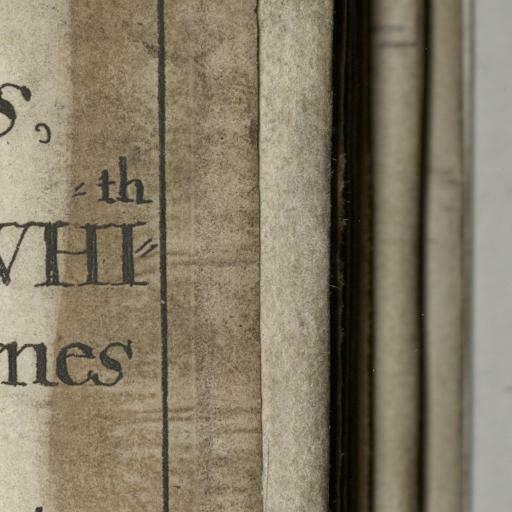 s,
-th
WHI-
mes